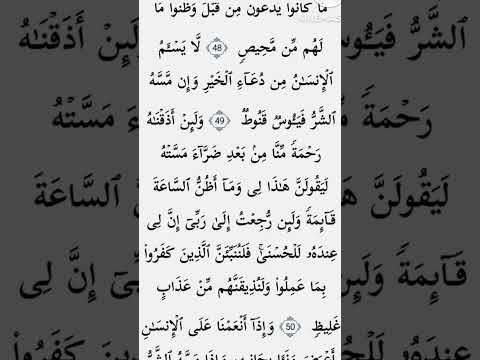 مَّا كَانُوا۟ يَدْعُونَ مِن قَبْلُ وَظَنُّوا۟ مَا
لَهُم مِّن مَّحِيصٍ ٤٨ لَّا يَسْـَٔمُ
ٱلْإِنسَـٰنُ مِن دُعَآءِ ٱلْخَيْرِ وَإِن مَّسَّهُ
ٱلشَّرُّ فَيَـُٔوسٌ قَنُوطٌ ٤٩ وَلَئِنْ أَذَقْنَـٰهُ
رَحْمَةً مِّنَّا مِنۢ بَعْدِ ضَرَّآءَ مَسَّتْهُ
لَيَقُولَنَّ هَـٰذَا لِى وَمَآ أَظُنُّ ٱلسَّاعَةَ
قَآئِمَةً وَلَئِن رُّجِعْتُ إِلَىٰ رَبِّىٓ إِنَّ لِى
عِندَهُۥ لَلْحُسْنَىٰ ۚ فَلَنُنَبِّئَنَّ ٱلَّذِينَ كَفَرُوا۟
بِمَا عَمِلُوا۟ وَلَنُذِيقَنَّهُم مِّنْ عَذَابٍ
غَلِيظٍ ٥٠ وَإِذَآ أَنْعَمْنَا عَلَى ٱلْإِنسَـٰنِ